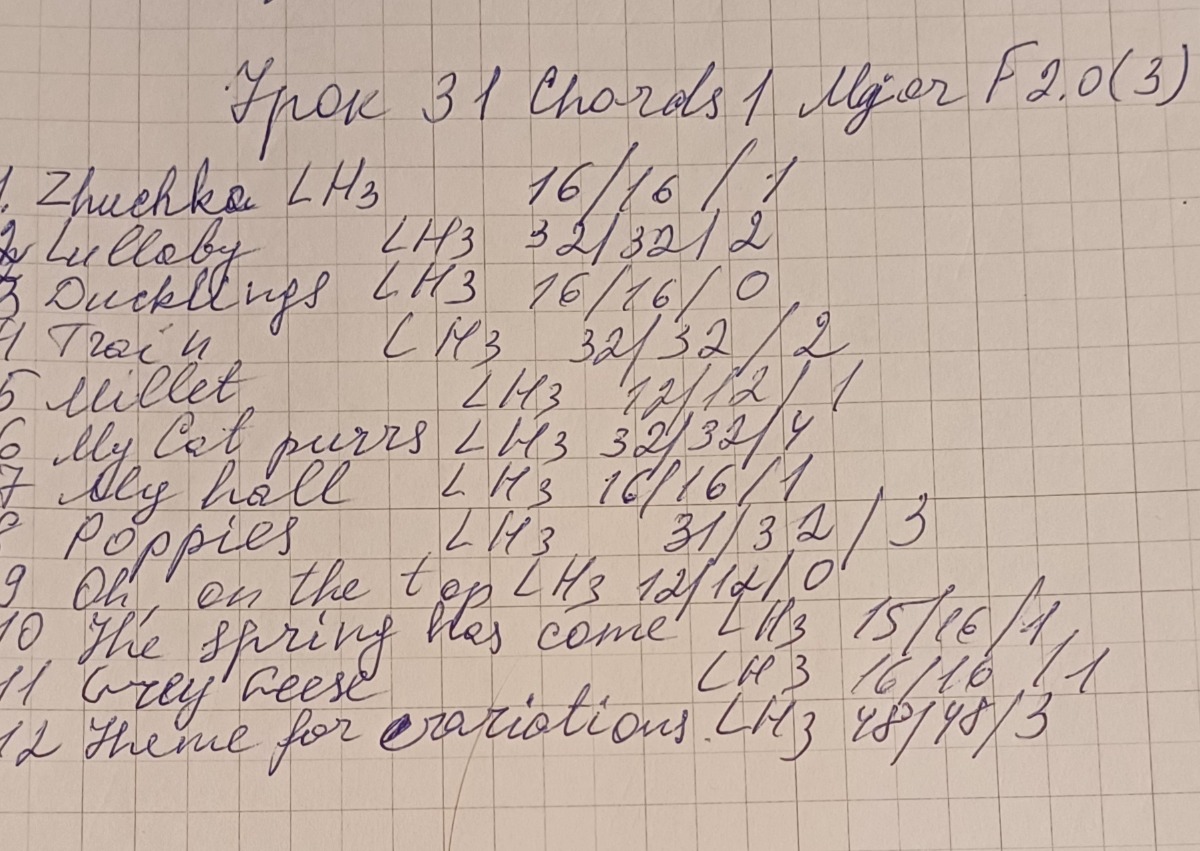 Урок 31 Chords 1 Major F 2.0(3)
1. Zhuchka LH3 16/16/1
2 Lullaby LH3 32/32/2
3 Ducklings LH3 16/16/0
4 Train LH3 32/32/2
5 Millet LH3 12/12/1
6 My Cat purrs LH3 32/32/4
7 My hall LH3 16/16/1
8 Poppies LH3 31/32/3
9 Oh, on the top LH3 12/12/0
10 The spring has come LH3 15/16/1
11 Grey Geese LH3 16/16/1
12 Theme for variations. LH3 48/48/3